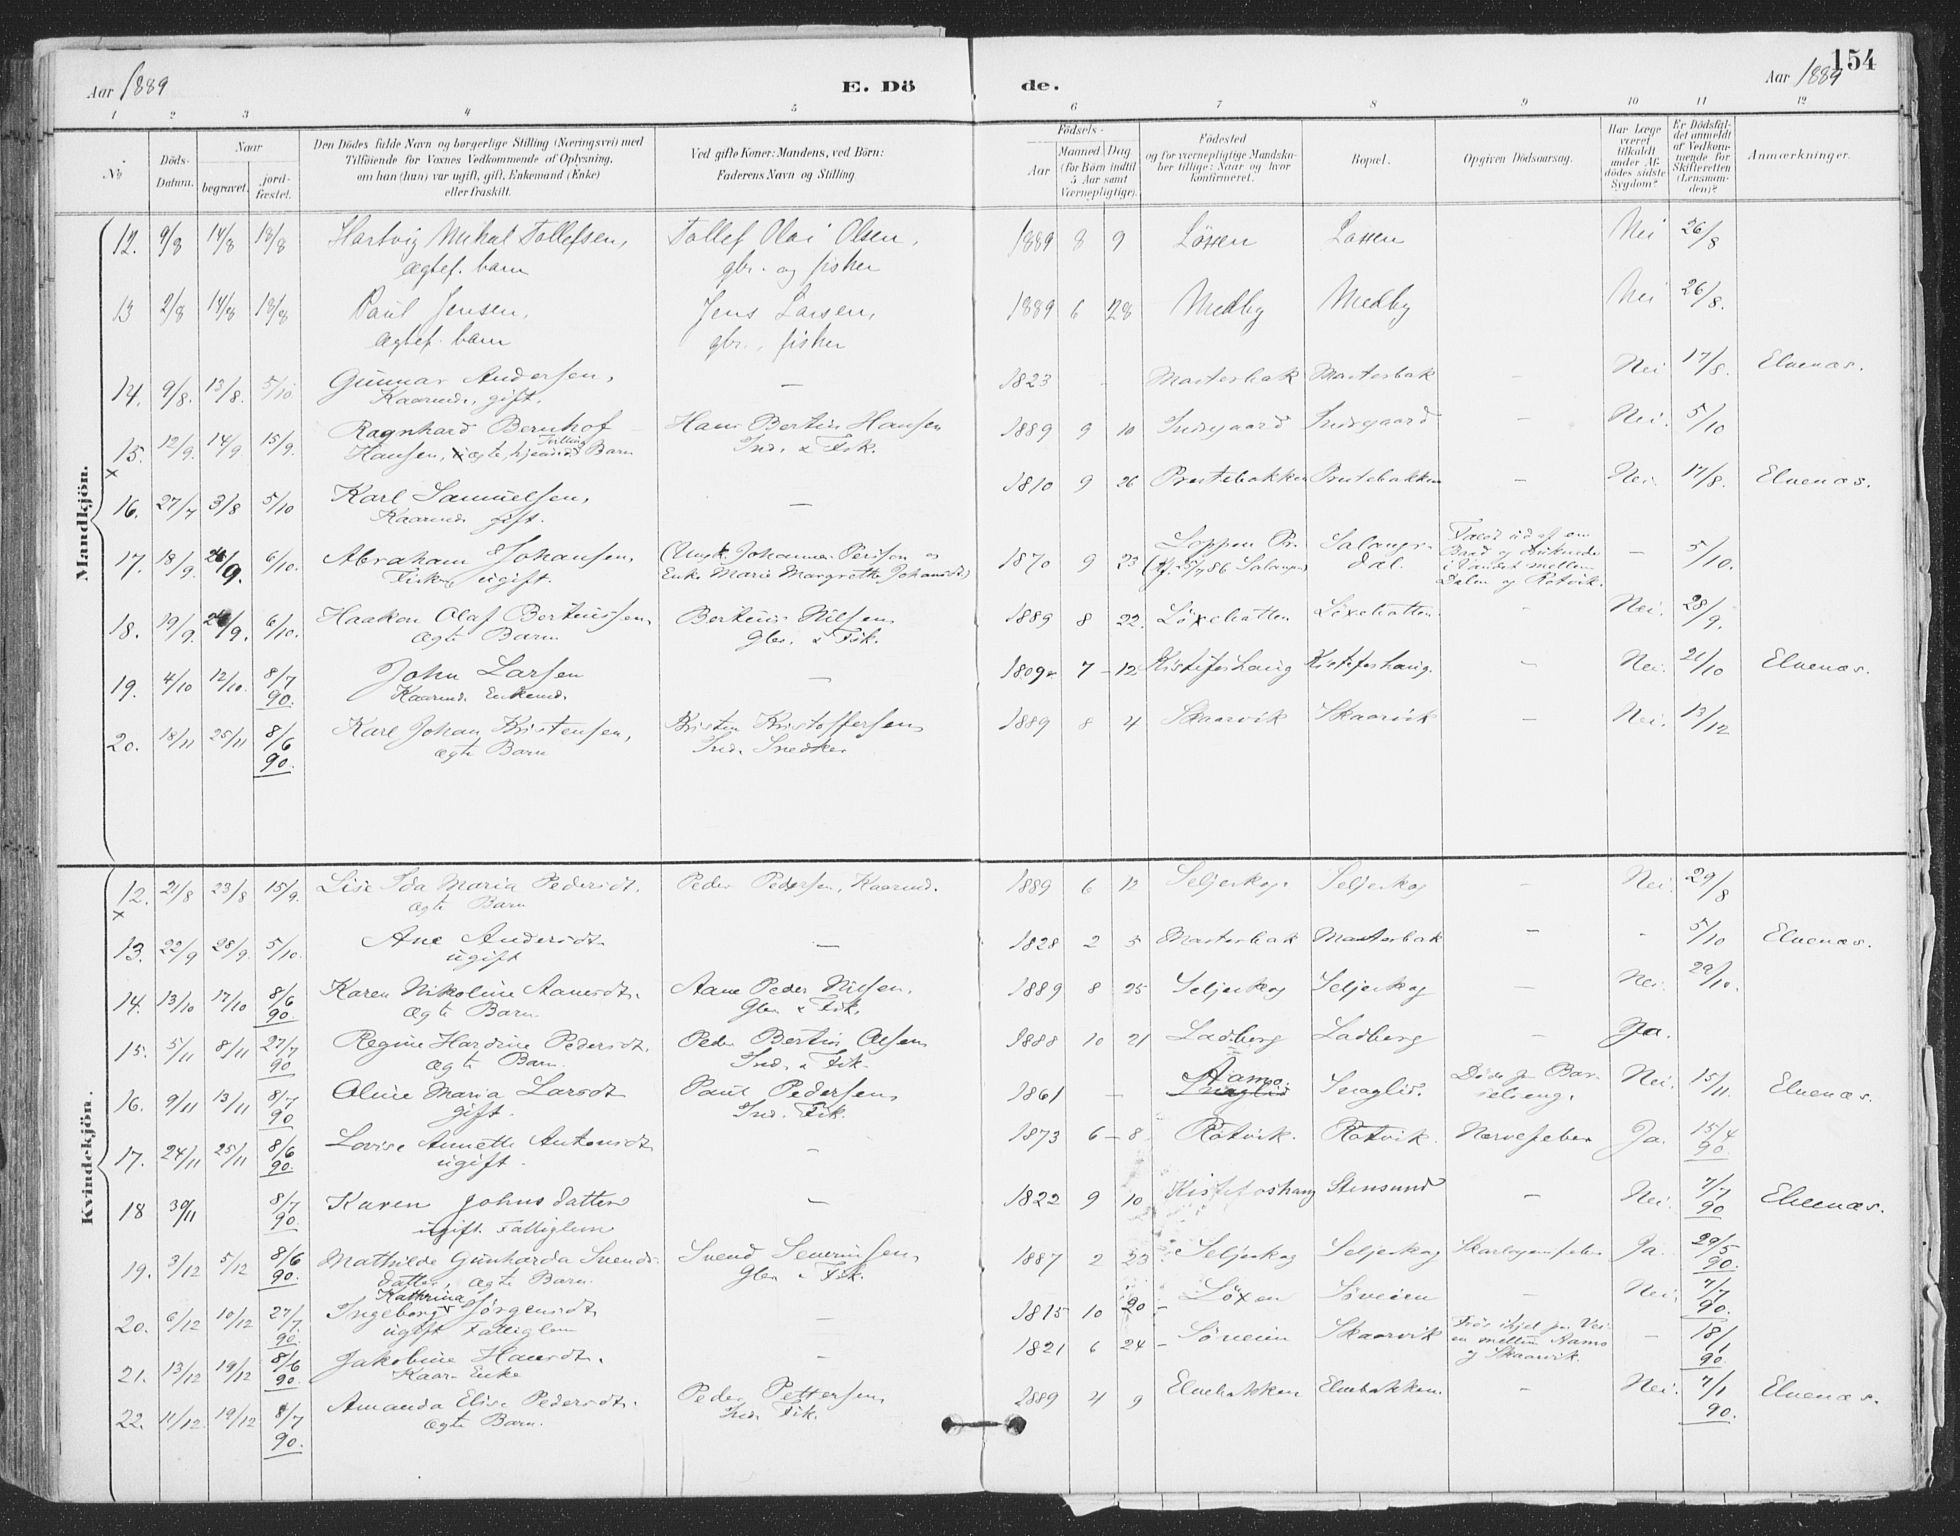 Aar 1889
E. Dö
de.
Aar 1889
154
1 2 3 4 5 6 7 8 9 10 11 12
No
Döds-
Datum.
Naar
begravet.
jord-
fæstet.
Den Dödes fulde Navn og borgerlige Stilling (Næringsvei) med
Tilföiende for Voxnes Vedkommende af Oplysning,
om han (hun) var ugift, gift, Enkemand (Enke)
eller fraskilt.
Ved gifte Koner: Mandens, ved Börn:
Faderens Navn og Stilling
Födsels-
Aar
Maaned Dag
(for Börn indtil
5 Aar samt
Værnepligtige).
Födested
og for værnepligtige Mandskaber
tillige: Naar og hvor
konfirmeret.
Bopæl.
Opgiven Dödsaarsag.
Har Læge
været
tilkaldt
under Af-
dödes sidste
Sygdom?
Er Dödsfal-
det anmeldt
af Vedkom-
mende for
Skifteretten
(Lensman-
den)?
Anmærkninger.
Mandkjön.
12. 9/8 14/8 18/8 Hartvig Mikal Tollefsen, Tollef Olai Olsen, 1889 8 9 Løxen Løxen Nei 26/8
ægtef. barn gbr. og fisker
13 2/8 14/8 18/8 Paul Jensen, Jens Larsen, 1889 6 28 Medby Medby Nei 26/8.
ægtef. barn gbr., fisker
14. 9/8. 13/8. 5/10 Gunnar Andersen, — 1823 - - Masterbak Masterbak — Nei 17/8. Elvenæs.
Kaarmd., gift.
15. 12/9. 14/9 15/9. Ragnhard Bernhof Hans Bertin Hansen 1889 9 10 Indgaard Indgaard — Nei. 5/10
x Hansen, ægte, hjemd. Tvilling Barn Ind. & Fisk.
16. 27/7 3/8 5/10 Karl Samuelsen, — 1810 9 26 Prestebakken Prestebakken — Nei. 17/8. Elvenæs.
Kaarmd. gift.
17. 18/9. 26/9. 6/10. Abraham Johansen, (Ungk. Johannes Persson og 1870 9 23 Loppen Pr. Salangs- Faldt ud af en — 5/10.
Fisker, ugift. Enke Marie Margrethe Johansdt) (Kf. 5/7 86 Salangen) dal. Baad og druknede
i Vandet mellem
Dalen og Rotvik.
18. 19/9. 26/9. 6/10. Haakon Olaf Bertinussen, Bertinus Nilsen 1889 8 22. Løxebatten Løxebatten — Nei. 28/9.
ægte Barn Gbr. & Fisk.
19. 4/10 12/10. 8/7 90. John Larsen — 1809 7 12 Kistefoshaug Kistefoshaug. — Nei. 21/10 Elvenæs.
Kaarmd. Enkemd.
20. 18/11 25/11 8/6 90. Karl Johan Kristensen, Kristen Kristoffersen 1889 8 4 Skaarvik Skaarvik — Nei. 13/12
ægte Barn Ind. Snedker
Kvindekjön.
12. 21/8 23/8 15/9. Lise Ida Maria Pedersdt. Peder Pedersen, Kaarmd. 1889 6 12 Seljeskog Seljeskog — Nei. 29/8
x ægte Barn
13. 22/9 28/9. 5/10. Ane Andersdt. — 1828 2 5 Masterbak Masterbak — - 5/10 Elvenæs.
ugift
14. 13/10 17/10 8/6 90. Karen Nikoline Aanesdt. Aane Peder Nilsen, 1889 8 25 Seljeskog Seljeskog — Nei. 29/10.
ægte Barn. Gbr & Fisk.
15. 5/11 8/11 27/7 90 Regine Hardine Pedersdt. Peder Bertin Olsen 1888 10 21 Ladberg Ladberg — Ja.
ægte Barn. Ind. & Fisk.
16. 9/11 13/11 8/7 90 Oline Maria Larsdt Paul Pedersen 1861 — Aamo. Snaglid. Døde paa Bar- Nei. 15/11. Elvenæs.
gift. Ind. Fisk. selseng.
17. 24/11 25/11 8/6 90. Lovise Annette Antonsdt. — 1873 6 8 Rotvik. Rotvik. Nervefeber Ja. 15/4 90.
ugift.
18 30/11 8/7 90. Karen Johnsdatter — 1822 9 10 Kistefoshaug Stensund — Nei. 7/7 90 Elvenæs.
ugift Fattiglem
19. 3/12 5/12 8/6 90. Mathilde Gunharda Svends- Svend Severinsen 1887 2 23 Seljeskog Seljeskog Skarlagensfeber Ja. 29/5 90.
datter, ægte Barn. Gbr & Fisk.
20. 6/12 10/12 27/7 90. Ingeborg Kathrina Jørgensdt. — 1815 10 20 Løxen Søveien — Nei. 7/7 90.
ugift Fattiglem
21. 13/12 19/12 8/6 90. Jakobine Hansdt. — 1821 6 24 Søveien Skaarvik Frøs ihjel paa Vei- — 18/1 90.
Kaar. Enke en mellem Aamo
og Skaarvik.
22. 11/12. 19/12 8/7 90. Amanda Elise Pedersdt. Peder Pettersen, 1889 4 9 Elvebakken Elvebakken. — Nei. 7/1 90. Elvenæs.
ægte Barn. Ind. Fisk.